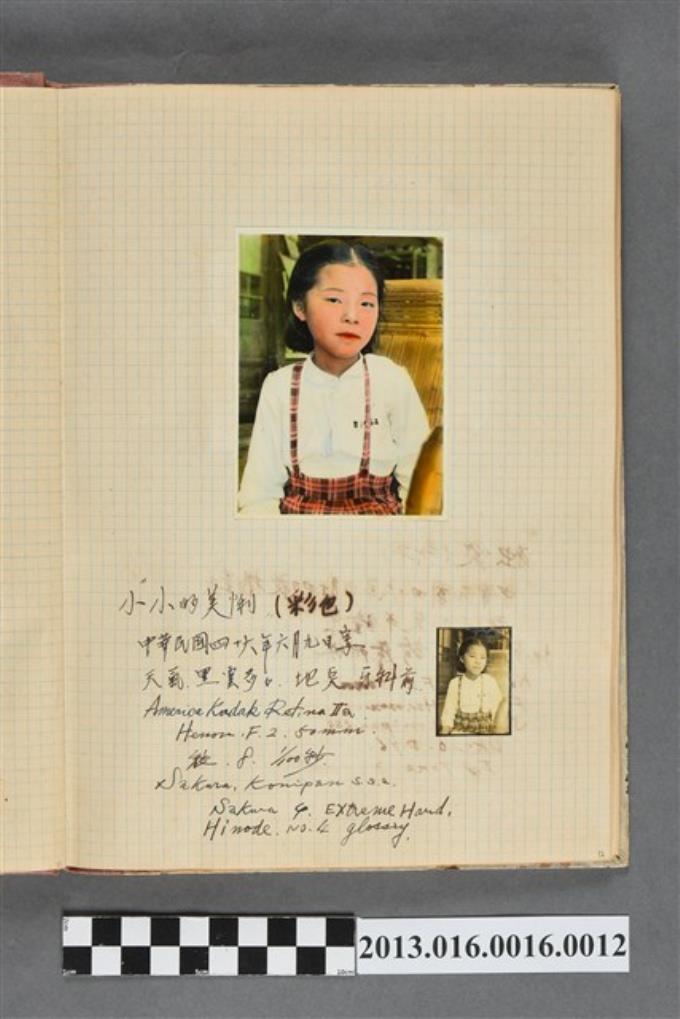 小小的美俐 (彩色)
中華民國四十六年六月九日寫
天氣. 黑雲多し. 地點. 牙科前
America Kodak Retina IIa
Henon. F. 2. 50mm.
絞. 8. 1/100秒.
Sakura, Konipan s.s.a.
Sakura 4. Extreme Hard.
Hinode. No. 4 glossy.
10cm
2013.016.0016.0012